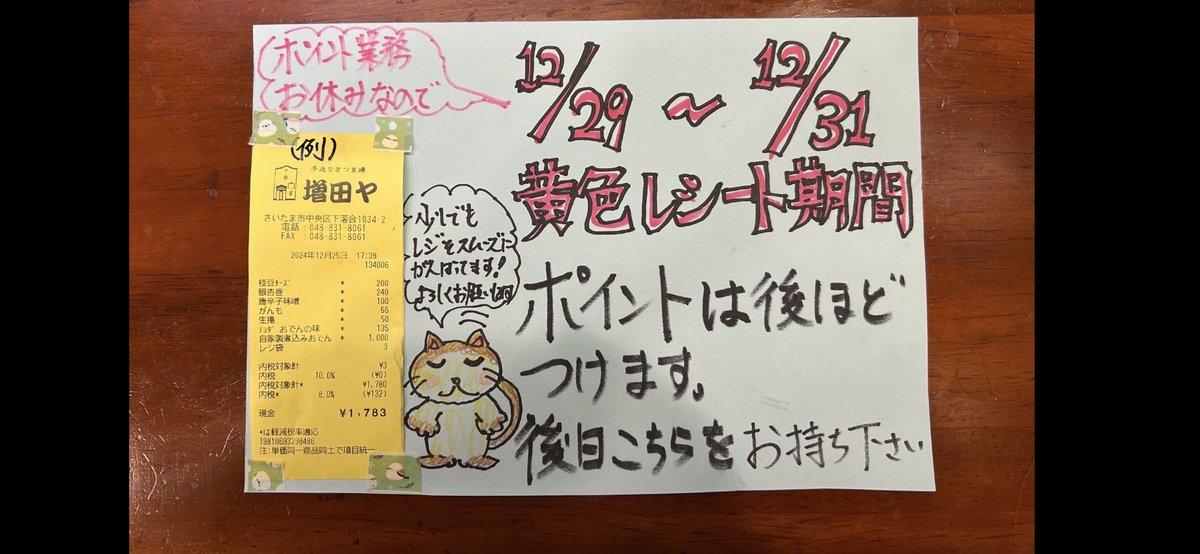 ポイント業務
お休みなので
12/29 ~ 12/31
黄色レシート期間
ポイントは後ほど
つけます。
後日こちらをお持ち下さい
少しでも
レジをスムーズに
がんばってます!
よろしくお願いします
(例)
手造りさつま揚
増田ヤ
さいたま市中央区下落合1034-2
電話:048-831-8061
FAX :048-831-8061
2024年12月25日 17:39
134006
枝豆チーズ * 200
銀杏巻 * 240
唐辛子味噌 * 100
がんも * 55
生揚 * 50
チョダ おでんの味 * 135
自家製煮込みおでん * 1,000
レジ袋 3
内税対象計 ¥3
内税 10.0% (¥0)
内税対象計* ¥1,780
内税* 8.0% (¥132)
現金 ¥1,783
*は軽減税率適応
T9810693298486
注:単価同一商品同士で項目統一